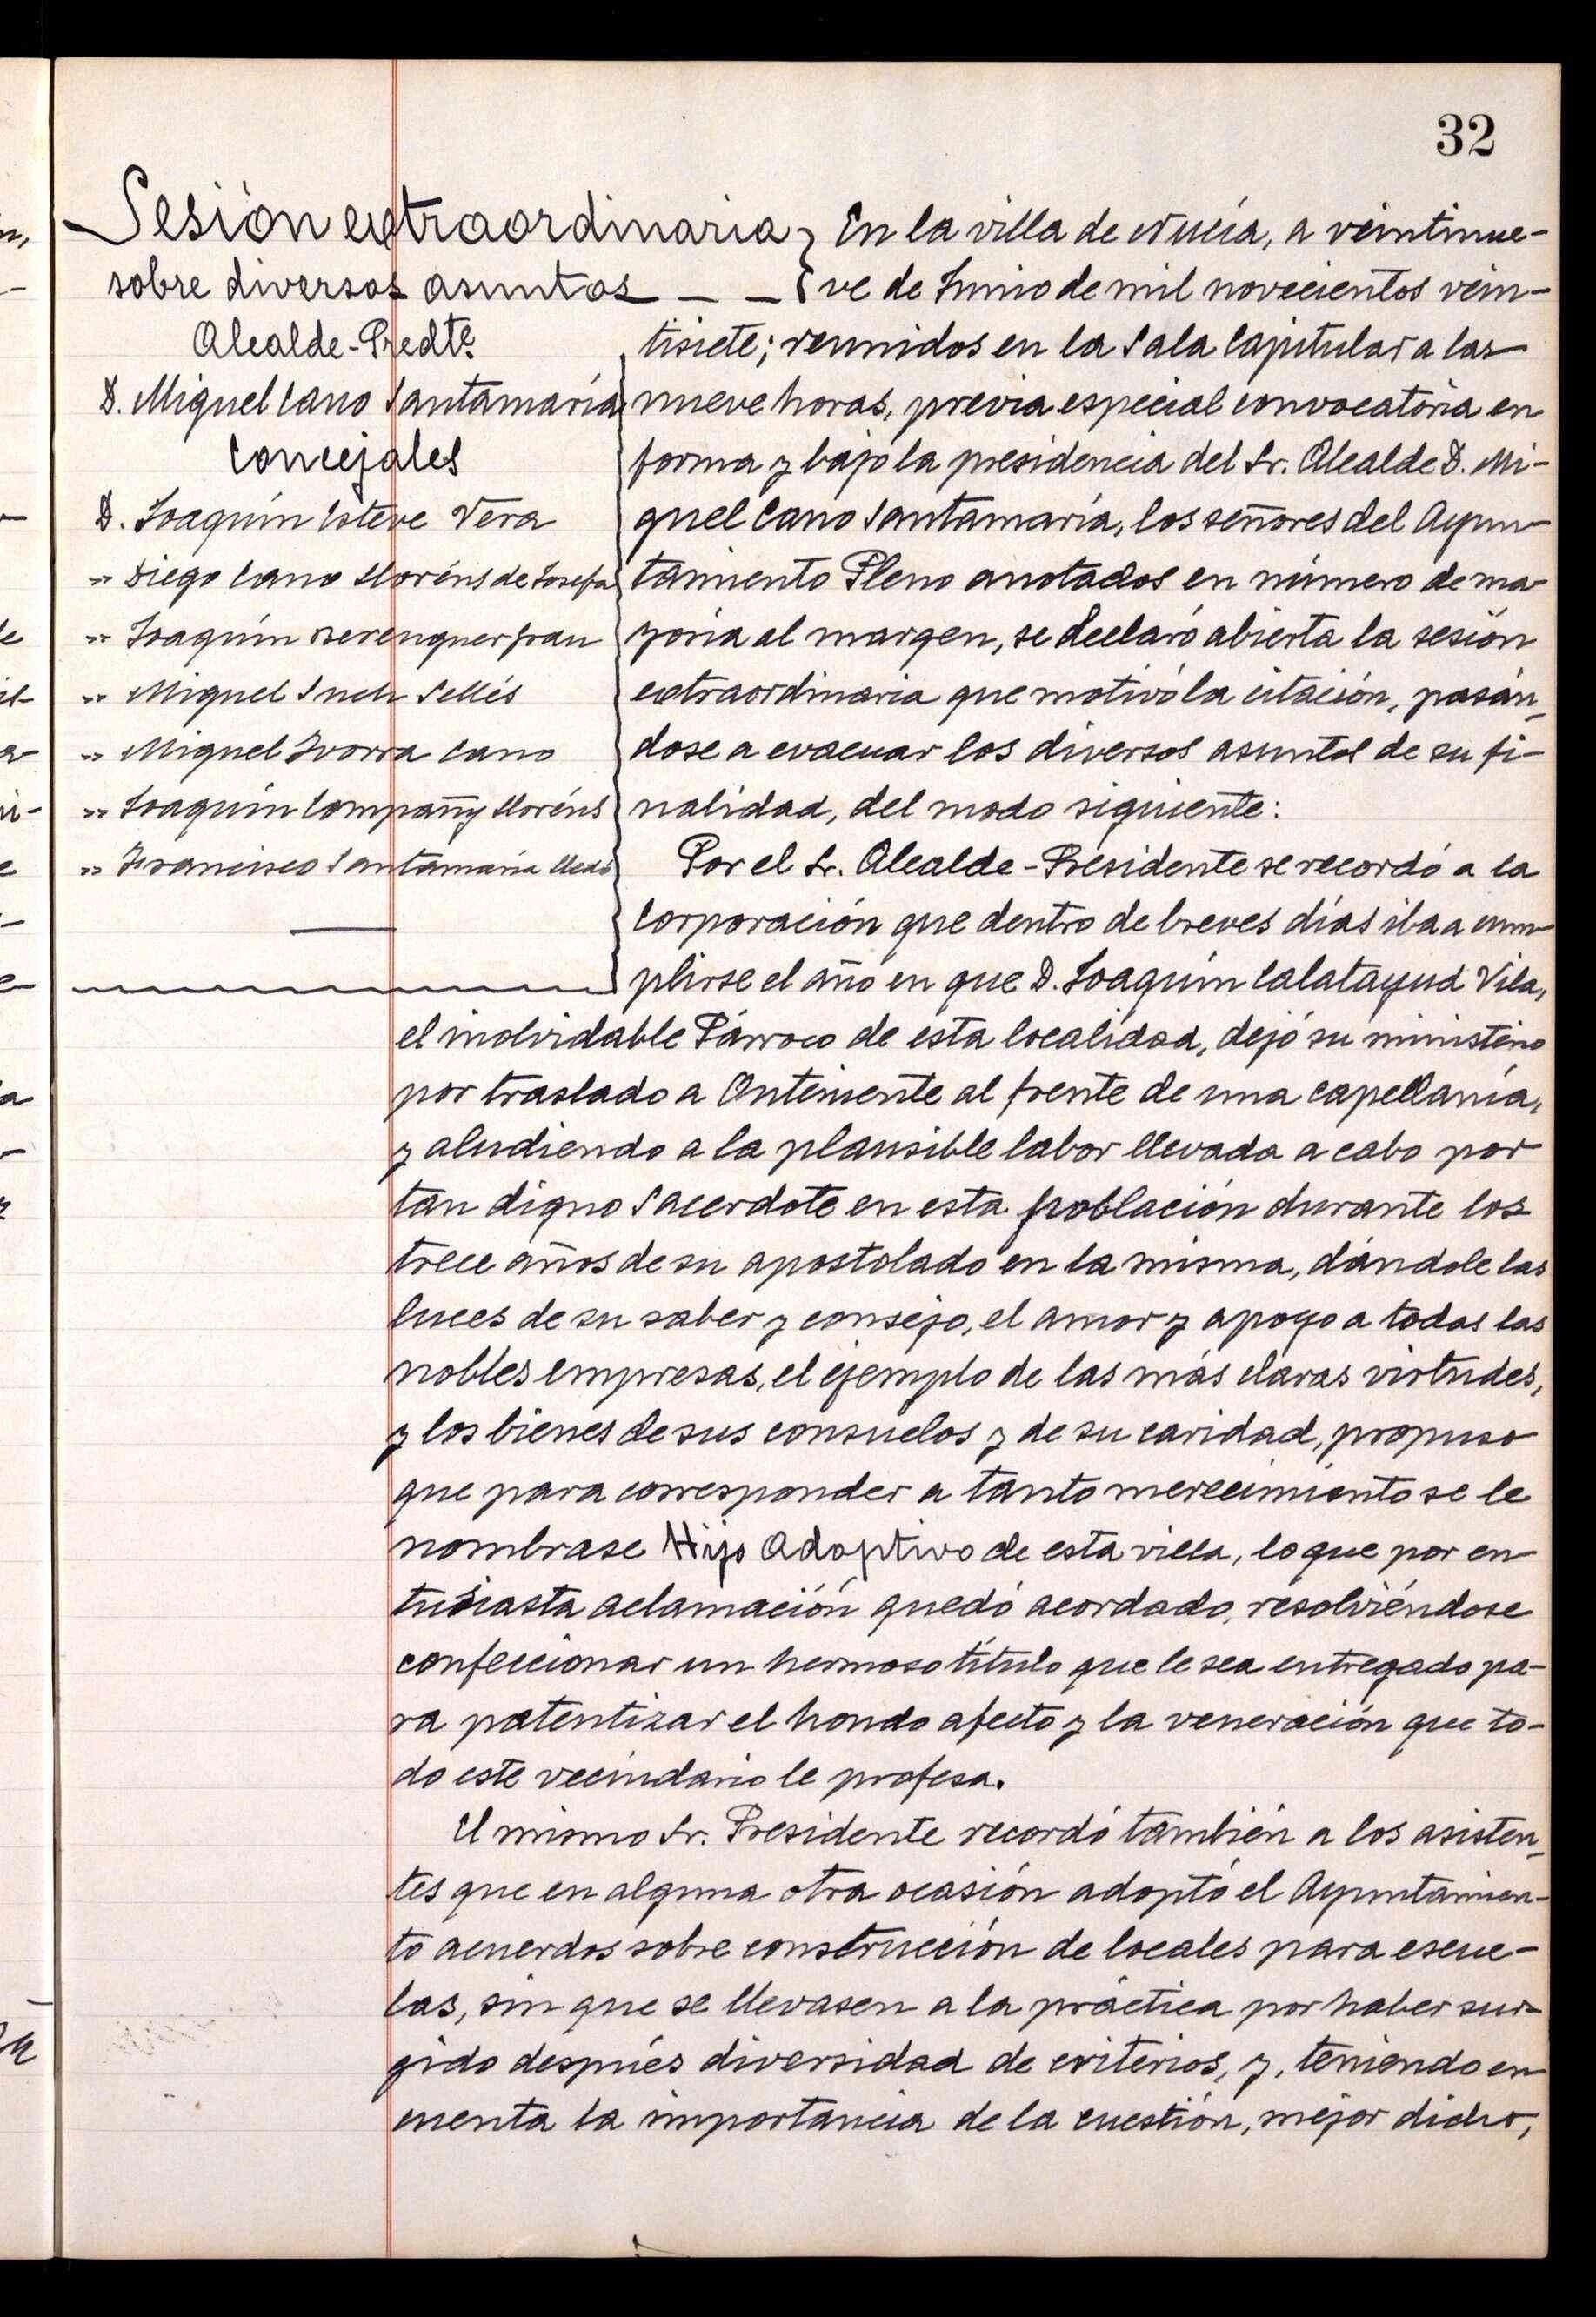 32
Sesión extraordinaria
sobre diversos asuntos
Alcalde-Predte.
D. Miguel Cano Santamaría
Concejales
D. Joaquín Esteve Vera
" Diego Cano Lloréns de Josefa
" Joaquín Berenguer Grau
" Miguel Such Sellés
" Miguel Ivorra Cano
" Joaquín Compañy Lloréns
" Francisco Santamaría Lledó
En la villa de Nucía, a veintinue-
ve de Junio de mil novecientos vein-
tisiete; reunidos en la Sala Capitular a las
nueve horas, previa especial convocatoria en
forma y bajo la presidencia del Sr. Alcalde D. Mi-
guel Cano Santamaría, los señores del Ayun-
tamiento Pleno anotados en número de ma-
yoria al margen, se declaró abierta la sesión
extraordinaria que motivó la citación, pasán-
dose a evacuar los diversos asuntos de su fi-
nalidad, del modo siguiente:
Por el Sr. Alcalde-Presidente se recordó a la
Corporación que dentro de breves días iba a cum-
plirse el año en que D. Joaquín Calatayud Vila,
el inolvidable Párroco de esta localidad, dejó su ministerio
por traslado a Onteniente al frente de una capellanía,
y aludiendo a la plausible labor llevada a cabo por
tan digno Sacerdote en esta población durante los
trece años de su apostolado en la misma, dándole las
luces de su saber y consejo, el amor y apoyo a todas las
nobles empresas, el ejemplo de las más claras virtudes,
y los bienes de sus consuelos y de su caridad, propuso
que para corresponder a tanto merecimiento se le
nombrase Hijo Adoptivo de esta villa, lo que por en-
tusiasta aclamación quedó acordado, resolviéndose
confeccionar un hermoso título que le sea entregado pa-
ra patentizar el hondo afecto y la veneración que to-
do este vecindario le profesa.
El mismo Sr. Presidente recordó también a los asisten-
tes que en alguna otra ocasión adoptó el Ayuntamien-
to acuerdos sobre construcción de locales para escue-
las, sin que se llevasen a la práctica por haber sur-
gido después diversidad de criterios, y, teniendo en
cuenta la importancia de la cuestión, mejor dicho,